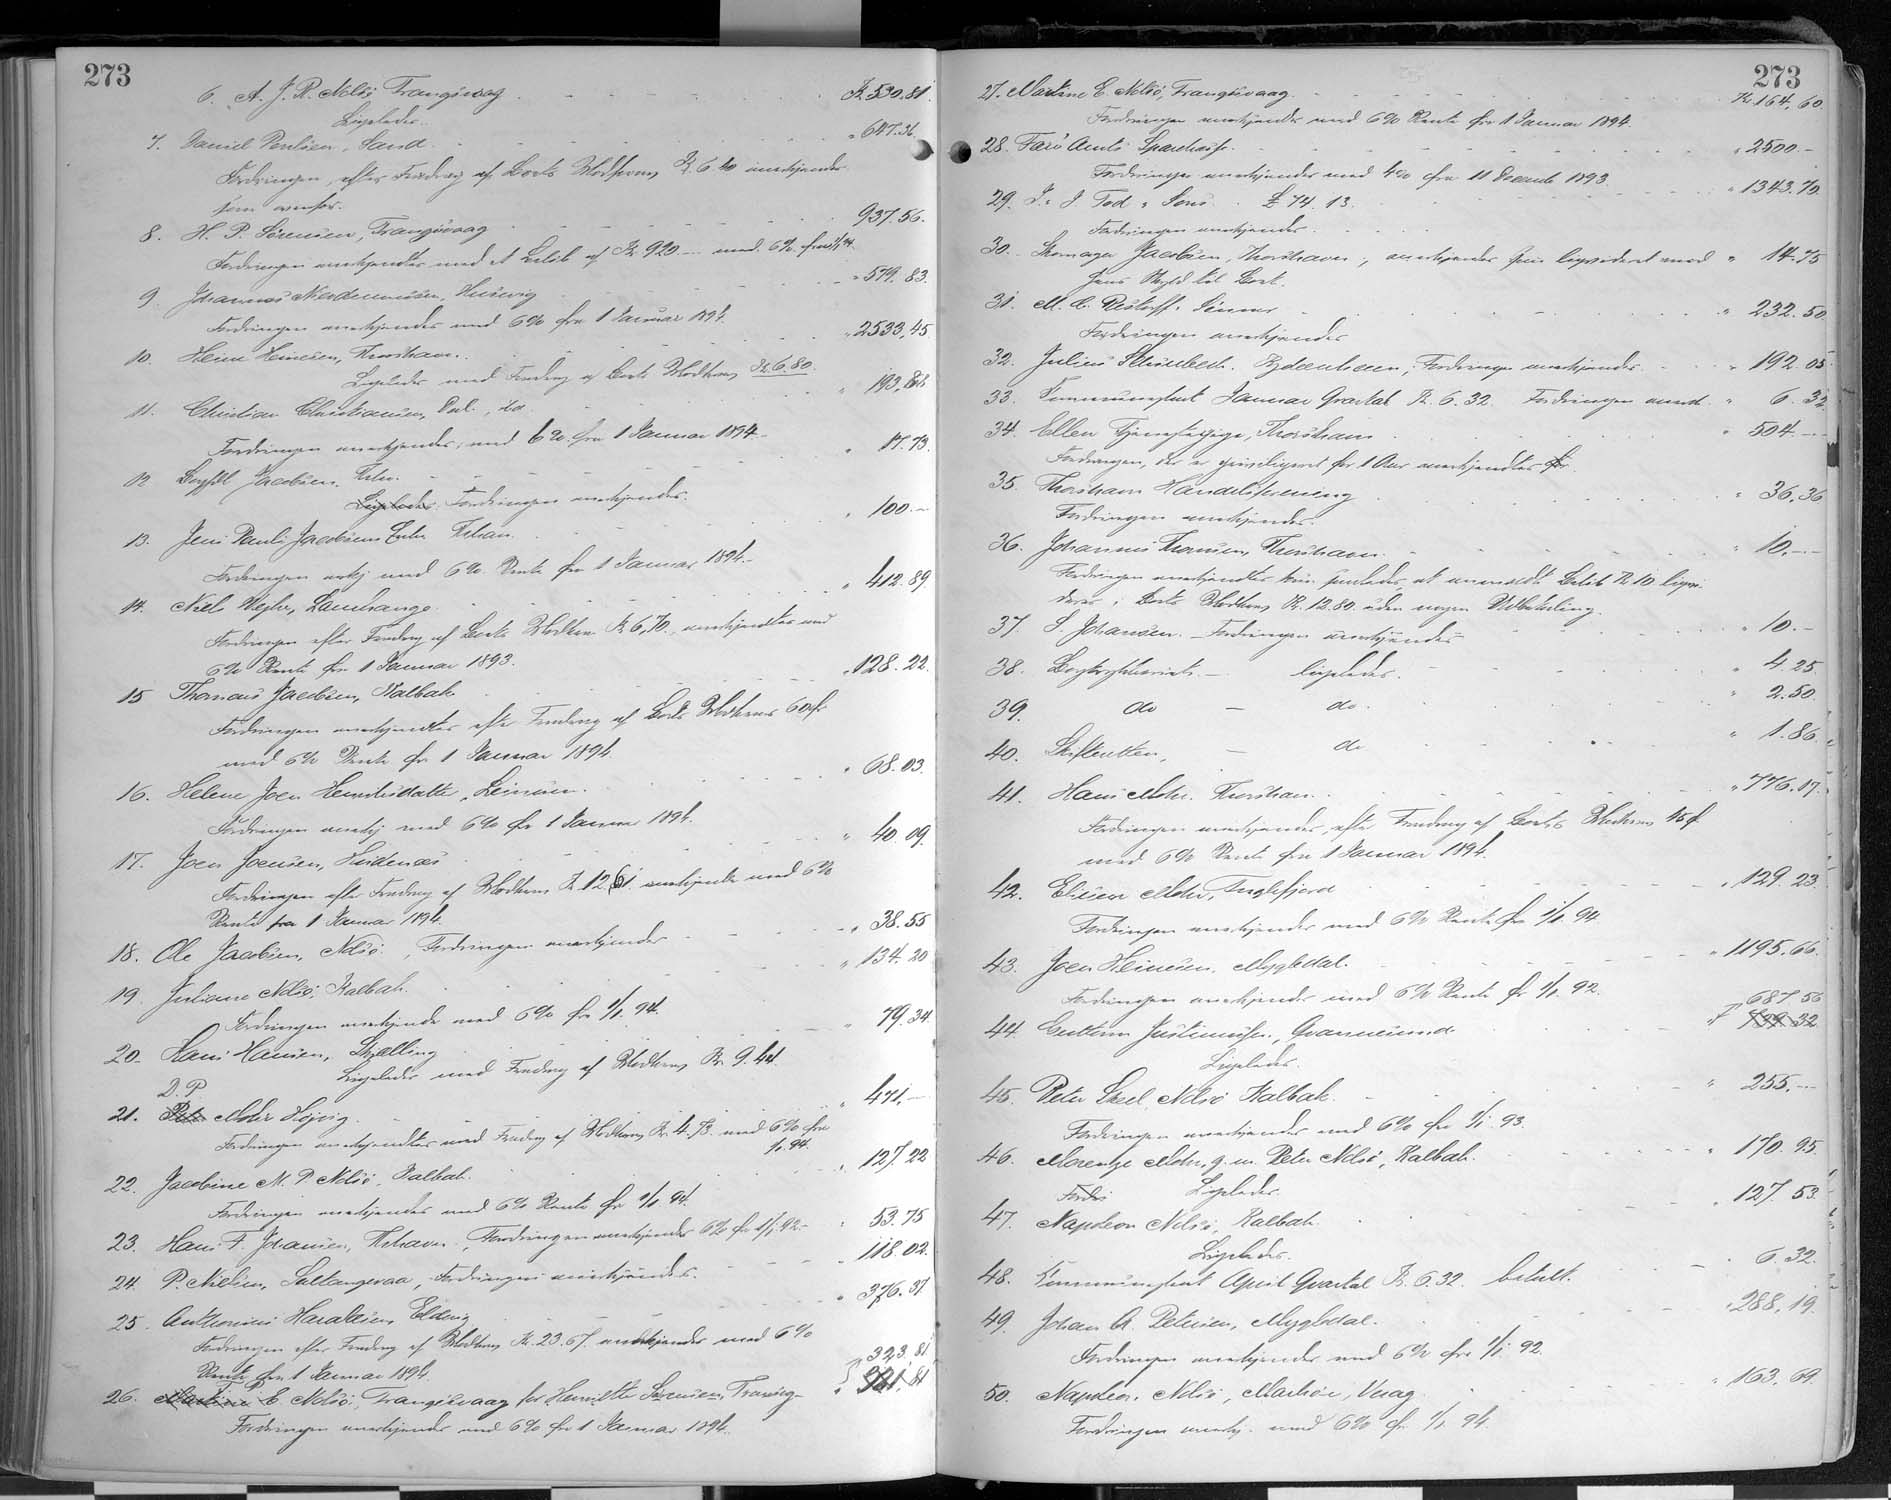 273
6. A. J. R. Nolsö, Trangisvaag Kr 530,81.
Ligeledes.
7. Daniel Poulsen, Sand. " 647.36
Fordringen, efter Fradrag af Boets Modkrav Kr. 6.40 anerkjendes
som ovenfor.
8. H. P. Sörensen, Trangisvaag 937.56.
Fordringen anerkjendtes med et Beløb af Kr 920 — med 6% fra 1/1 94
9. Johannes Husevig " 579.83.
Fordringen anerkjendes med 6% fra 1 Januar 1894.
10. Heine Heinesen, Thorshavn. " 2533,45
Ligeledes med Fradrag af Boets Modkrav Kr 6.80.
11. Christian Christiansen, do. " 193,
Fordringen anerkjendes, med 6% fra 1 Januar 1894.
" 17.73.
12 Jacobsen,
Ligeledes Fordringen anerkjendes.
13. Jens Pauli Jacobsens Enke " 100.—
Fordringen ankj med 6% Rente fra 1 Januar 1894.
14. Niels Wejhe, Lamhauge. " 412.89
Fordringen efter Fradrag af Boets Modkrav Kr 6,70, anerkjendtes med
6% Rente fra 1 Januar 1893.
15 Thomas Jacobsen, Kalbak " 128.22.
Fordringen anerkjendtes efter Fradrag af Boets Modkrav 60 Øre
med 6% Rente fra 1 Januar 1894.
16. Helene Joen Leinum. " 68.03.
Fordringen anerkj med 6% fra 1 Januar 1894.
17. Joen Joensen, " 40.09.
Fordringen efter Fradrag af Modkrav Kr. 12.61. anerkjendes med 6%
Rente fra 1 Januar 1894.
18. Ole Jacobsen, Nolsö. , Fordringen anerkjendes " 38.55
19. Juliane Nolsö, Kalbak. " 134.20
Fordringen anerkjendes med 6% fra 1/1 94.
20. Hans Hansen, Skælling " 79.34
Ligeledes med Fradrag af Modkrav Kr. 9.44.
D. P
21. Mohr Hojvig. " 471.—
Fordringen anerkjendtes med Fradrag af Modkrav Kr. 4.73 med 6% fra
1/1 94.
22. Jacobine M. P. Nolsö, Kalbak. " 127.22
Fordringen anerkjendes med 6% Rente fra 1/1 94.
23. Hans F. Johansen, Thshavn, Fordringen anerkjendes 6% fra 1/1 92. " 53.75
24. P. Nielsen, Saltangeraa, Fordringen anerkjendes. " 118.02.
25. Anthonius Haraldsen, Eldevig " 376.37
Fordringen efter Fradrag af Modkrav Kr. 23.67. anerkjendes med 6%
Rente fra 1 Januar 1894. 323.81
26. Martine E Nolsö, Trangisvaag for Henriette Sörensen, Trangisv
Fordringen anerkjendes med 6% fra 1 Januar 1894.
273
27. Martine E. Nolsö, Trangisvaag. Kr. 164,60
Fordringen anerkjendes med 6% Rente fra 1 Januar 1894.
28. Færö Amts Sparekasse. " 2500.—
Fordringen anerkjendes med 4% fra 11 Decemb 1893.
29. J. & J. Tod & Sons. £ 74.13. " 1343.70
Fordringen anerkjendes.
30. Skomager Jacobsen, Thorshavn, anerkjendes som liqvideret med " 14.75
hans Skyld til Boet.
31. M. C. Restorff & Sönner " 232.50
Fordringen anerkjendes
32. Julius Steenbech, Kjøbenhavn, Fordringen anerkjendes " 192.05
33. Kommuneskat Januar Qvartal Kr. 6.32. Fordringen anerk. " 6.32
34. Ellen Tjenestepige, Thorshavn " 504.—
Fordringen, der er privilegeret for 1 Aar anerkjendtes
35. Thorshavn Handelsforening " 36.36
Fordringen anerkjendes.
36. Johannes Thomsen, Thorshavn. " 10.—
Fordringen anerkjendtes kun saaledes at anmeldte Beløb Kr 10 liqvi-
deres i Boets Modkrav Kr. 12.80 uden nogen Udbetaling.
37. S. Johansen. — Fordringen anerkjendes " 10.—
38. — ligeledes. " 4.25
39. do — do. " 2.50.
40. Skifteretten, — do " 1.86.
41. Hans Mohr. Thorshavn. " 776.07.
Fordringen anerkjendes, efter Fradrag af Boets Modkrav 45 Ø.
med 6% Rente fra 1 Januar 1894.
42. Mohr, Fuglefjord " 129.23.
Fordringen anerkjendes med 6% Rente fra 1/1 94
43. Joen Heinesen. Mygledal. " 1195.66.
Fordringen anerkjendes med 6% Rente fr 1/1 92.
687.56
44. Guttorm Justinussen, Qvannesund
Ligeledes.
45. Peter Nolsö Kalbak. " 255.—
Fordringen anerkjendes med 6% fra 1/1 93.
46. Morentze Mohr, g. m. Peter Nolsö, Kalbak. " 170.95.
Fordri Ligeledes.
47. Napoleon Nolsö, Kalbak. " 127.53.
Ligeledes.
48. Kommuneskat April Qvartal Kr. 6.32. betalt. 6.32.
49. Johan A. Petersen, Mygledal. " 288.19.
Fordringen anerkjendes med 6% fra 1/1 92.
50. Napoleon Nolsö, Vaag. " 163.69.
Fordringen anerkj. med 6% fra 1/1 94.